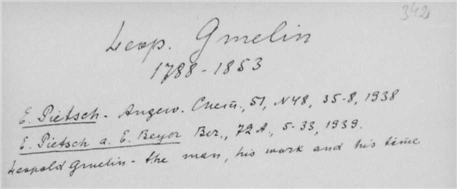 342
Leop. Gmelin
1788-1853
E. Pietsch - Angew. Chem., 51, N48, 35-8, 1938
E. Pietsch a. E. Beyer Ber., 72 A, 5-33, 1939.
Leopold Gmelin - the man, his work and his time